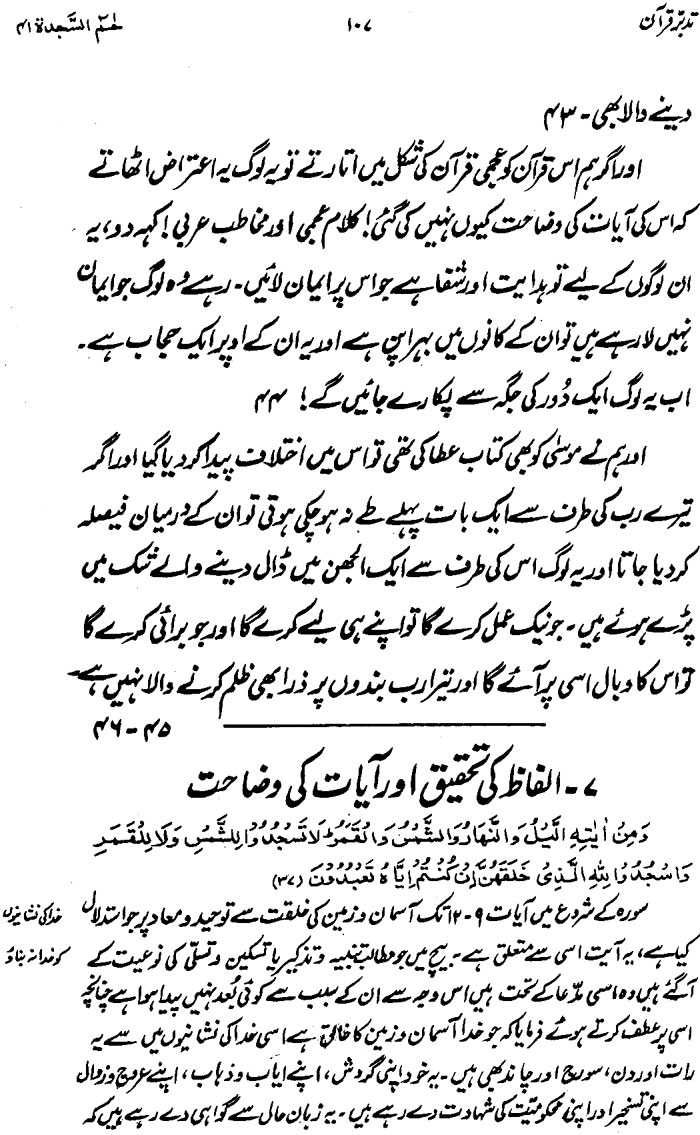 تدبّر قرآن ۱۰۷ حٰمٓ السَّجدة ۴۱
دینے والا بھی - ۴۳
اور اگر ہم اس قرآن کو عجمی قرآن کی شکل میں اتارتے تو یہ لوگ یہ اعتراض اٹھاتے
کہ اس کی آیات کی وضاحت کیوں نہیں کی گئی! کلام عجمی اور مخاطب عربی! کہہ دو، یہ
ان لوگوں کے لیے تو ہدایت اور شفا ہے جو اس پر ایمان لائیں۔ رہے وہ لوگ جو ایمان
نہیں لا رہے ہیں تو ان کے کانوں میں بہرا پن ہے اور یہ ان کے اوپر ایک حجاب ہے۔
اب یہ لوگ ایک دُور کی جگہ سے پکارے جائیں گے! ۴۴
اور ہم نے موسیٰ کو بھی کتاب عطا کی تھی تو اس میں اختلاف پیدا کر دیا گیا اور اگر
تیرے رب کی طرف سے ایک بات پہلے طے نہ ہو چکی ہوتی تو ان کے درمیان فیصلہ
کر دیا جاتا اور یہ لوگ اس کی طرف سے ایک الجھن میں ڈال دینے والے شک میں
پڑے ہوئے ہیں۔ جو نیک عمل کرے گا تو اپنے ہی لیے کرے گا اور جو برائی کرے گا
تو اس کا وبال اسی پر آئے گا اور تیرا رب بندوں پر ذرا بھی ظلم کرنے والا نہیں ہے۔
۴۵-۴۶
۷ - الفاظ کی تحقیق اور آیات کی وضاحت
وَمِنْ اٰيٰتِهِ الَّيْلُ وَالنَّهَارُ وَالشَّمْسُ وَالْقَمَرُ ؕ لَا تَسْجُدُوْا لِلشَّمْسِ وَلَا لِلْقَمَرِ
وَاسْجُدُوْا لِلّٰهِ الَّذِىْ خَلَقَهُنَّ اِنْ كُنْتُمْ اِيَّاهُ تَعْبُدُوْنَ (۳۷)
سورہ کے شروع میں آیات ۹-۱۲ تک آسمان و زمین کی خلقت سے توحید و معاد پر جو استدلال
خدا کی نشانیوں
کیا ہے، یہ آیت اسی سے متعلق ہے۔ بیچ میں جو مطالب تنبیہ و تذکیر یا تسکین و تسلی کی نوعیت کے
کو خدا نہ بناؤ
آ گئے ہیں وہ اسی مدّعا کے تحت ہیں اس وجہ سے ان کے سبب سے کوئی بُعد نہیں پیدا ہوا ہے چنانچہ
اسی پر عطف کرتے ہوئے فرمایا کہ جو خدا آسمان و زمین کا خالق ہے اسی خدا کی نشانیوں میں سے یہ
رات اور دن، سورج اور چاند بھی ہیں۔ یہ خود اپنی گردش، اپنے ایاب و ذہاب، اپنے عروج و زوال
سے اپنی تسخیر اور اپنی محکومیّت کی شہادت دے رہے ہیں۔ یہ زبان حال سے گواہی دے رہے ہیں کہ